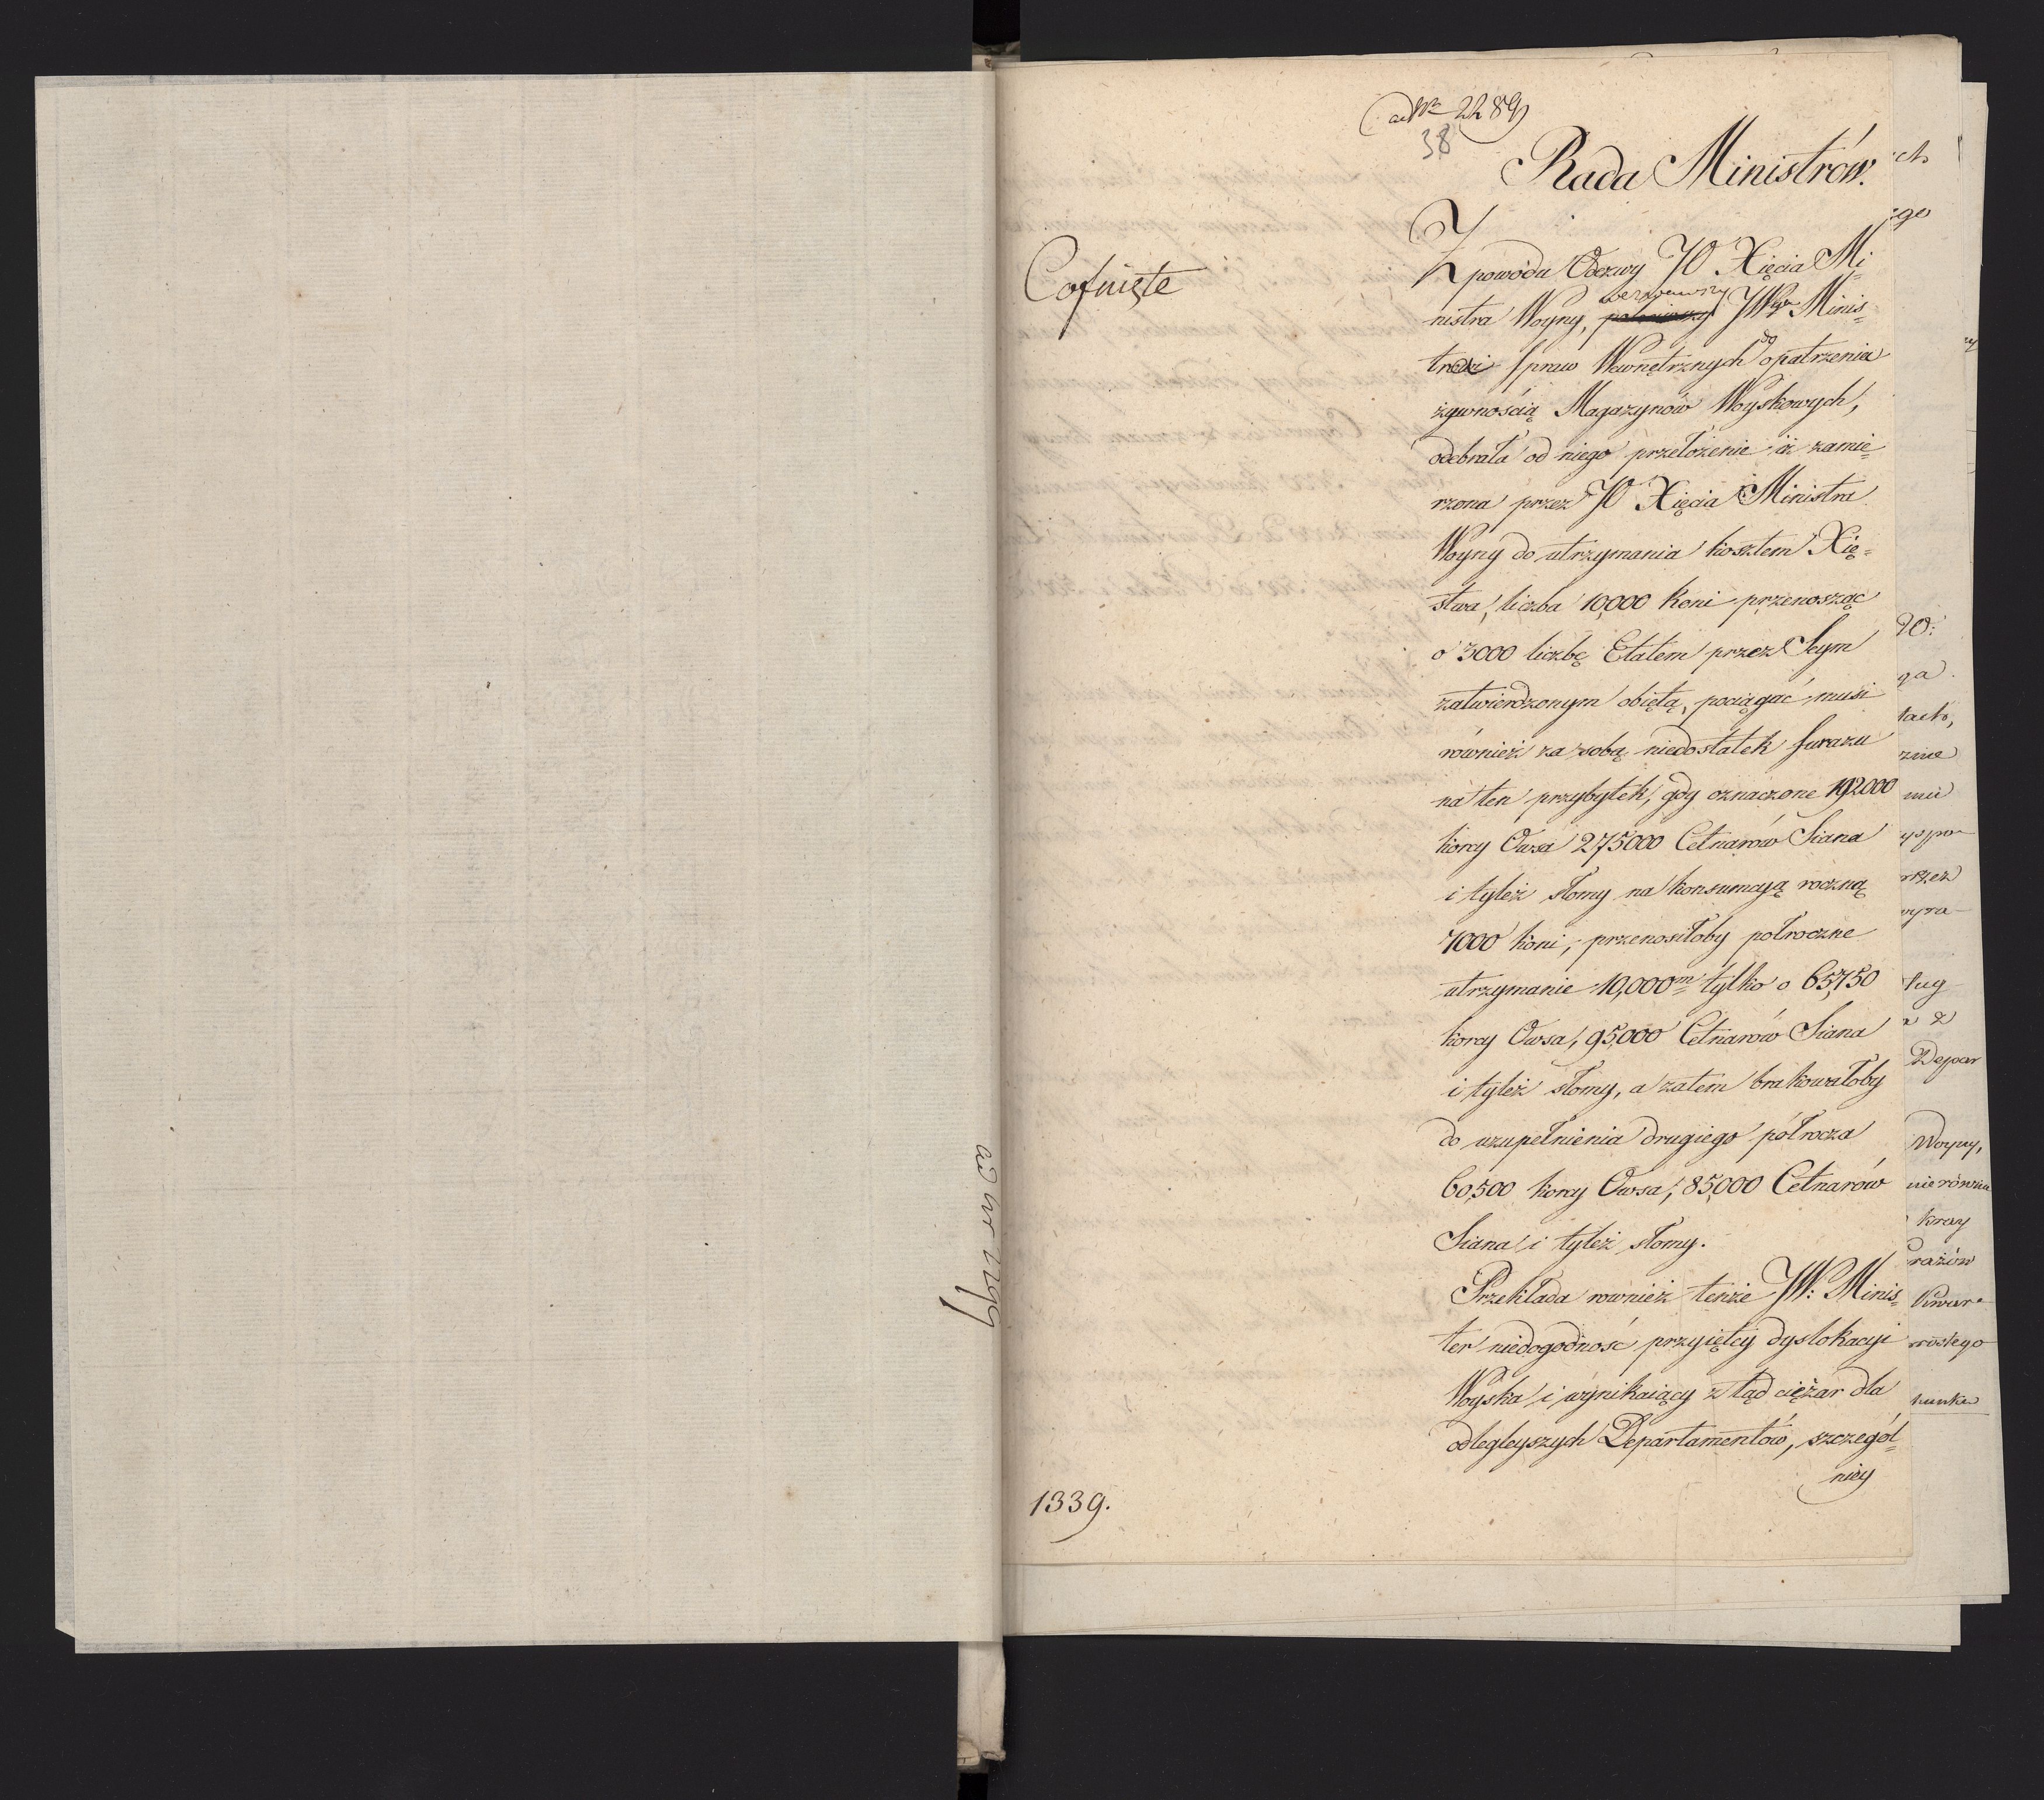 ad Nr 2289
(ad Nr 2289)
38
Rada Ministrów.
Cofnięte
Z powodu Odezwy JO Xięcia Mi=
nistra Woyny, wezwawszy JWgo Minis=
tra Spraw Wewnętrznych do opatrzenia
żywnością Magazynów Woyskowych,
odebrała od niego przełożenie iż zamie=
rzona przez JO Xięcia Ministra
Woyny do utrzymania kosztem Xię=
stwa, liczba 10,000 koni przenosząc
o 3000 liczbę Etatem przez Seym
zatwierdzonym obiętą, pociągać musi
również za sobą niedostatek furazu
na ten przybytek, gdy oznaczone 192000
korcy Owsa 275000 Cetnarów Siana
i tyleż słomy na konsumcyą roczną
7000 koni, przenosiłoby połroczne
utrzymanie 10,000m tylko o 65,750
korcy Owsa, 95,000 Cetnarów Siana
i tyleż słomy, a zatem brakowałoby
do uzupełnienia drugiego półrocza
60,500 korcy Owsa, 85,000 Cetnarów
Siana i tyleż słomy.
Przekłada rownież tenże JW: Minis=
ter niedogodność przyiętey dyslokacyi
Woyska i wynikaiący ztąd ciężar dla
odległeyszych Departamentów, szczegól=
niey
1339.
ch
ego
ga
tach,
rzez
wyra-
ług
Depar
Woyny,
kray